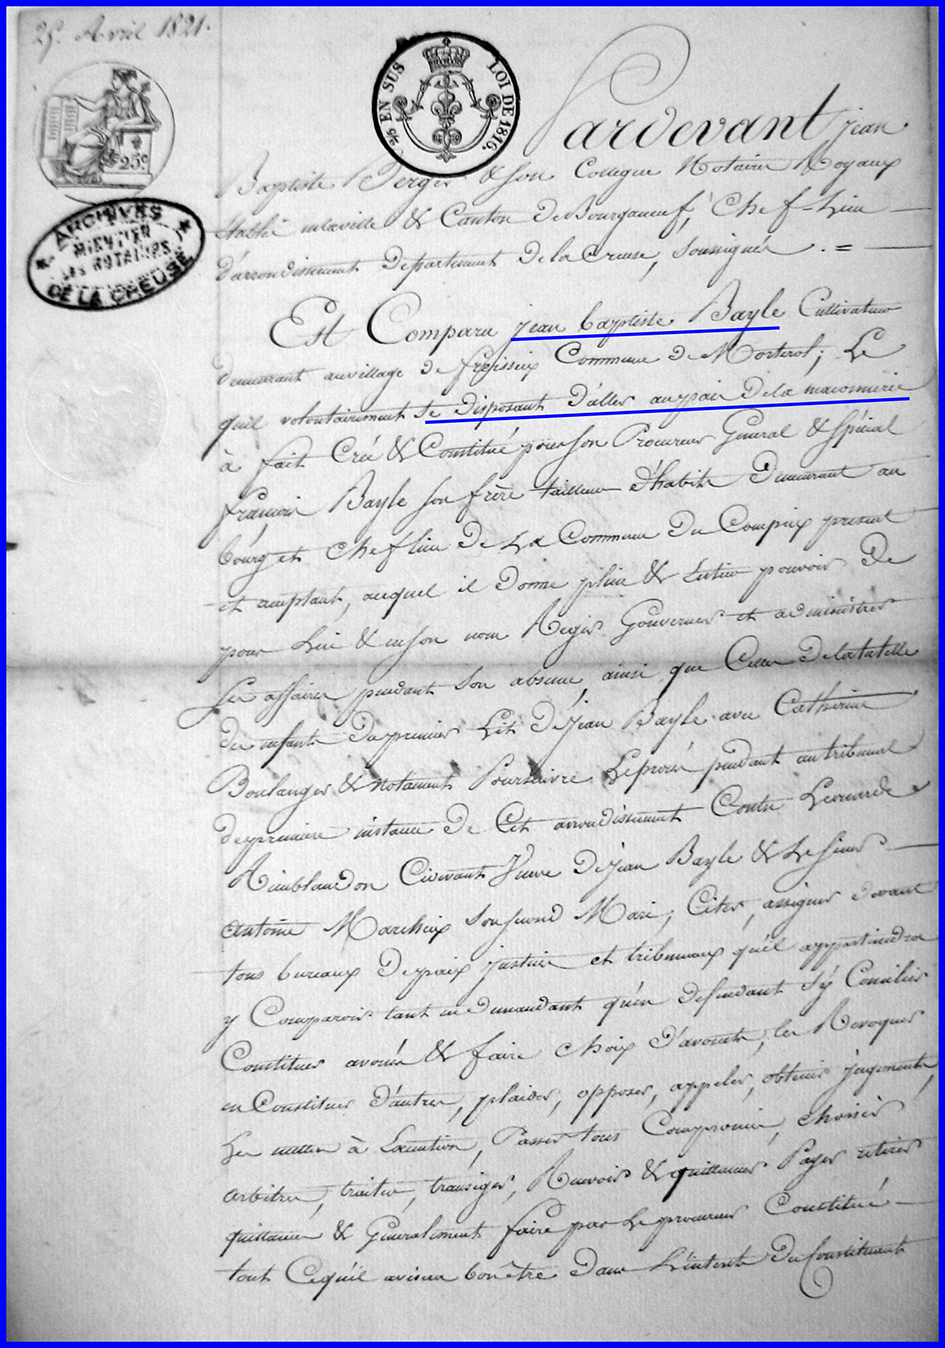 25. Avril 1821.
25c
2/5 EN SUS LOI DE 1816.
ARCHIVES
DES NOTAIRES
DE LA CREUSE
Pardevant Jean
Baptiste Berger & son Collegue Notaire Royaux
établi enlaville & Canton de Bourganeuf, Chef-Lieu
d'arrondissement departement de la Creuse, soussignés . =
Est Comparu jean baptiste Bayle Cultivateur
demeurant auvillage de freisseix Commune de Morterol; Le
quel volontairement se disposant d'aller aupair de la maconnerie
à fait Créé & Constitué pourson Procureur General & spécial
françois Bayle son frère tailleur d'habits demeurant au
bourg et chef lieu de La Commune du Compeix present
et acceptant, auquel il donne plein & entier pouvoir de
pour Lui & enson nom Regir Gouverner et administrer
ses affaires pendant son absence, ainsi que Celles delatutelle
des enfants dupremier Lit de jean Bayle avec Catherine
Boulanger & notament Poursuivre Leprocès pendant autribunal
depremiere instance de Cet arrondissement Contre Leonarde
Rimblaudon Cidevant Veuve de jean Bayle & Le sieur
antoine Marcheix Sonsecond Mari; Citer, assigner devant
tous bureaux depaix justice et tribunaux qu'il appartiendra
y Comparoir tant en demandant qu'en defendant s'y Concilier
Constituer avoués & faire choix d'avocats, les Revoquer
en Constituer d'autres, plaider, opposer, appeler, obtenir jugements
Les mettre à Execution, Passer tous Compromis, choisir
arbitres, traiter, transiger, Recevoir & quittancer Payer retirer
quittances & Généralement faire par Le procureur Constitué
tout Cequ'il avisera bonêtre dans L'interêt du Constituant